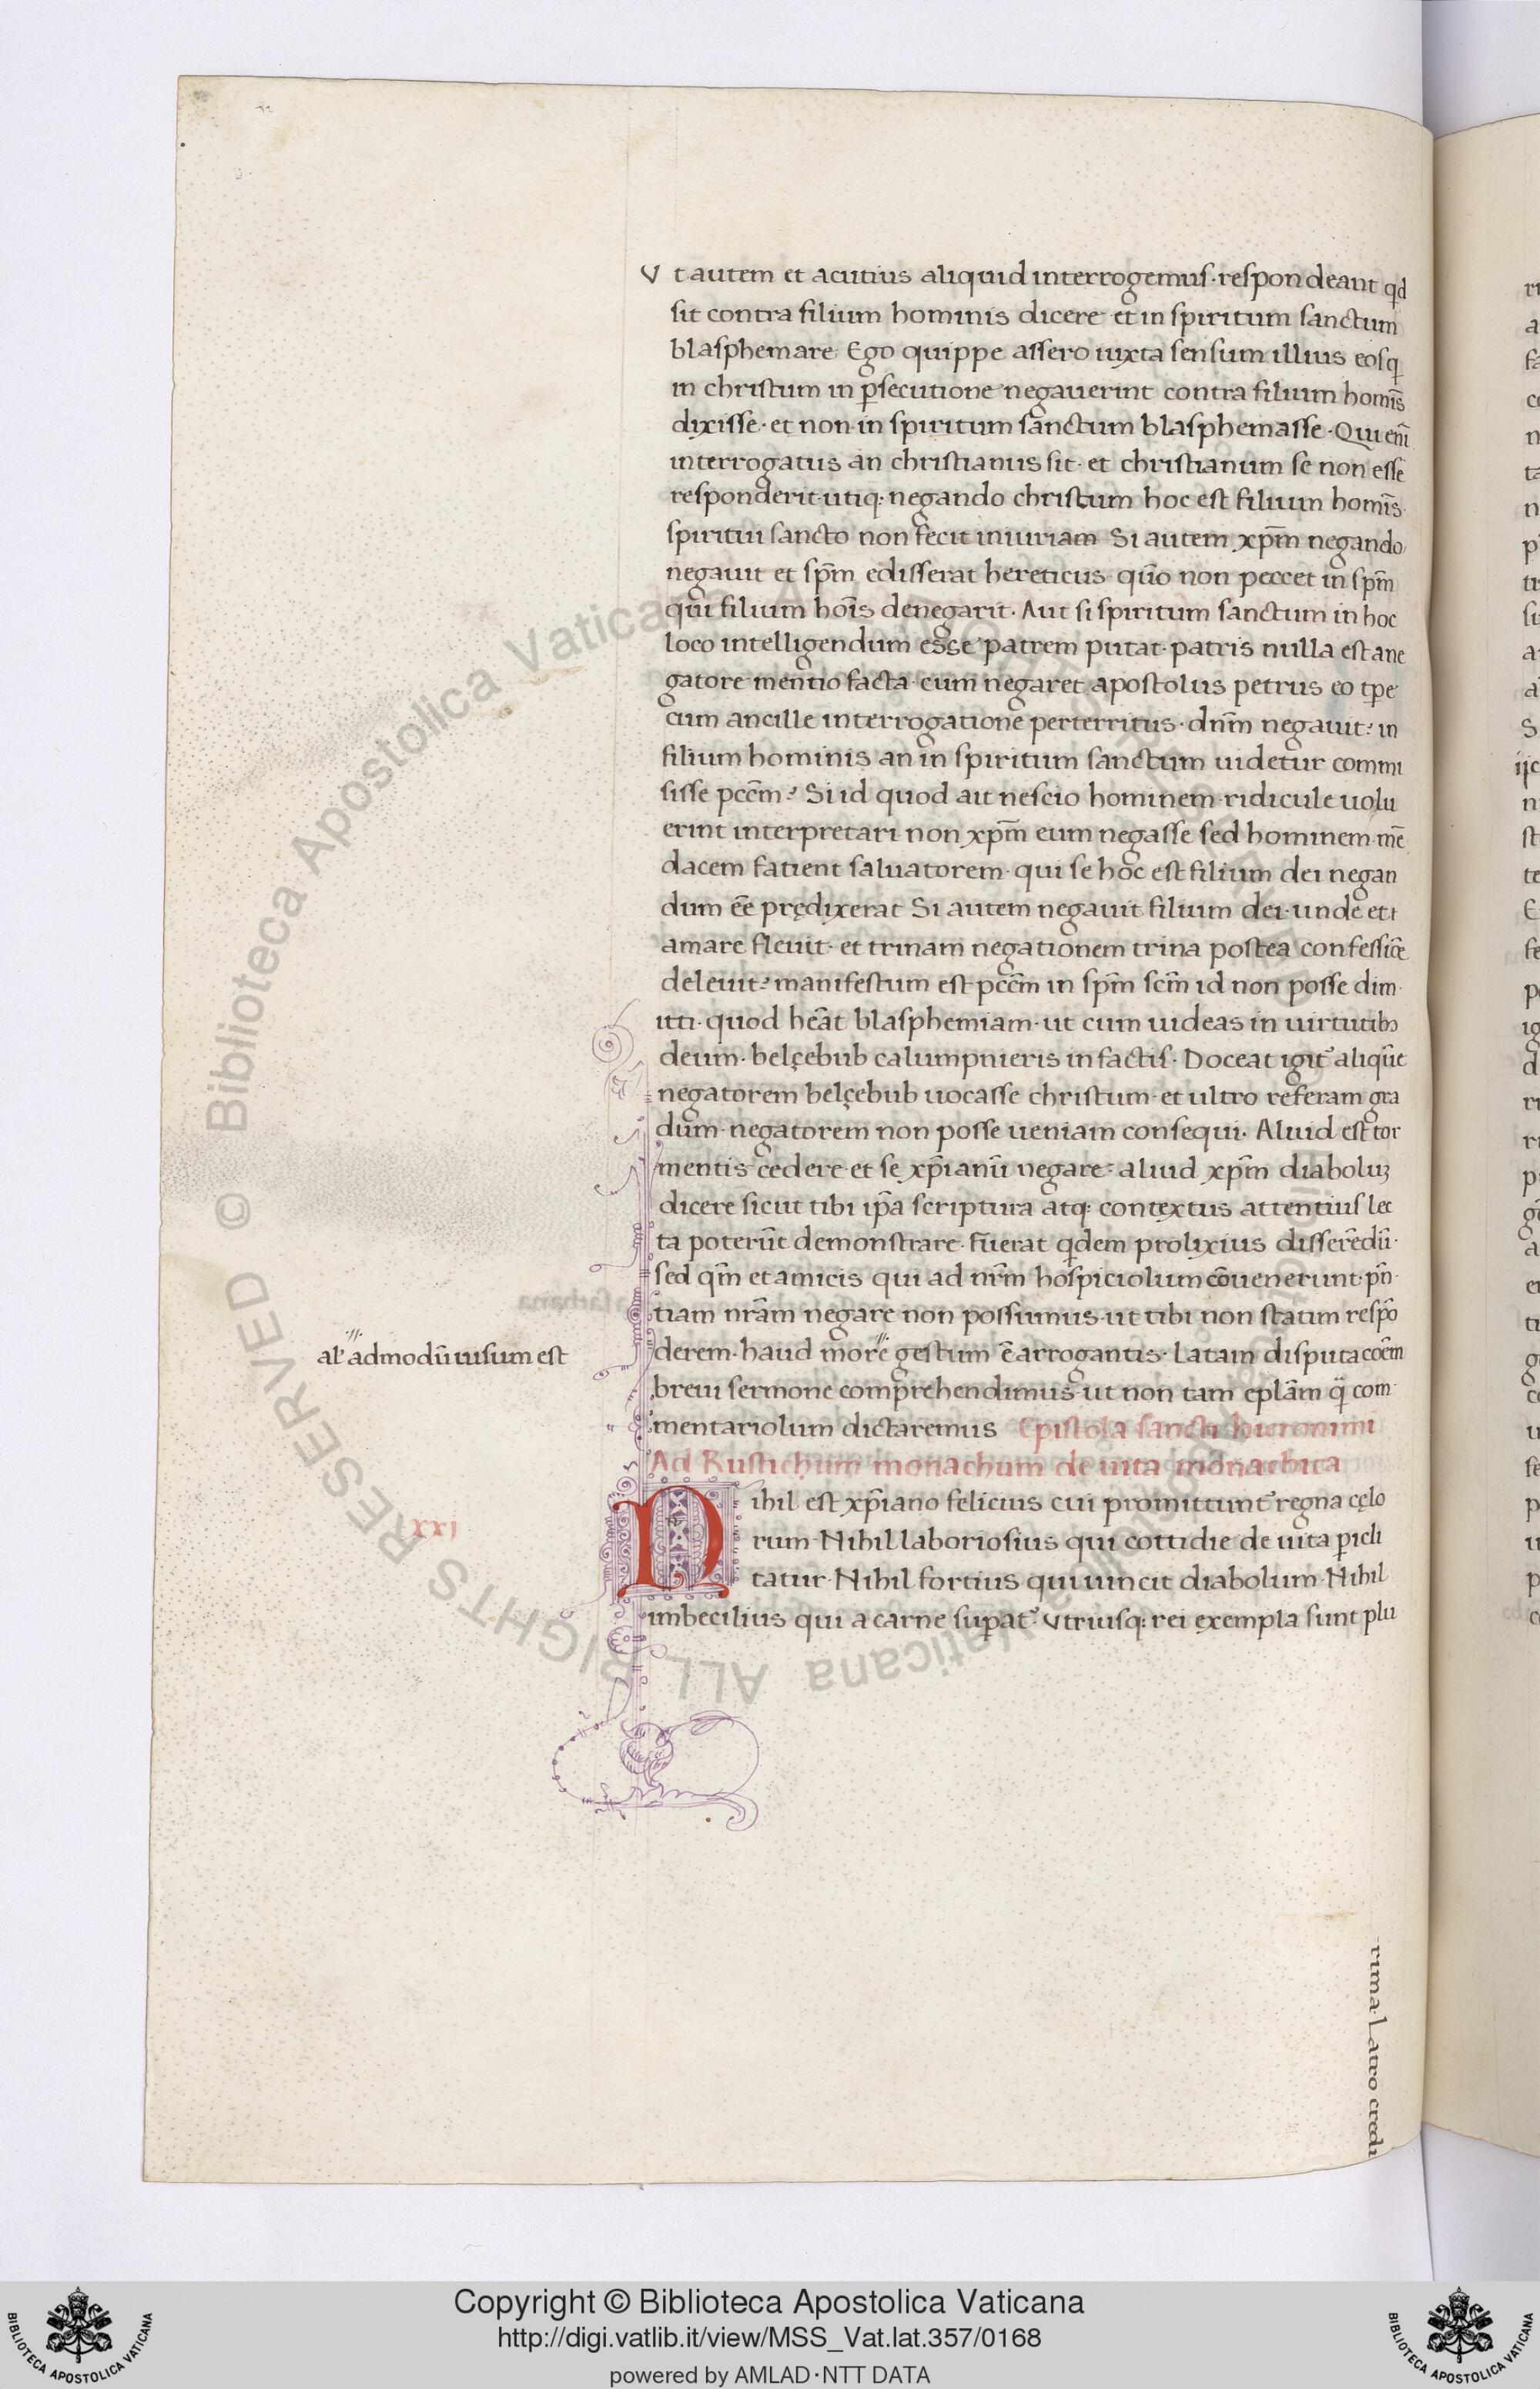 Vt autem et acutius aliquid interrogemus· respondeant qd
sit contra filium hominis dicere et in spiritum sanctum
blasphemare Ego quippe assero iuxta sensum illius eosq
in christum in p̱secutione negauerint contra filium homīs
dixisse· et non in spiritum sanctum blasphemasse· Qui enī
interrogatus an christianus sit· et christianum se non esse
responderit· utiq: negando christum hoc est filium homīs·
spiritui sancto non fecit iniuriam Si autem xp̄m negando
negauit et sp̄m edisserat hereticus quō non peccet in sp̄m
qui filium hoīs denegarit· Aut si spiritum sanctum in hoc
loco intelligendum esse patrem putat· patris nulla est a ne
gatore mentio facta· cum negaret apostolus petrus eo tp̄e
cum ancille interrogatione perterritus· dn̄m negauit? in
filium hominis an in spiritum sanctum uidetur commi
sisse pcc̄m? Si id quod ait nescio hominem ridicule uolu
erint interpretari non xp̄m eum negasse sed hominem· mē
dacem fatient saluatorem· qui se hoc est filium dei negan
dum ēe prędixerat Si autem negauit filium dei· unde et
amare fleuit· et trinam negationem trina postea confessiōe
deleuit? manifestum est pcc̄m in sp̄m sc̄m id non posse dim
itti· quod hēat blasphemiam· ut cum uideas in uirtutibꝫ
deum· belçebub calumpnieris in factis· Doceat igit᷑ aliquē
negatorem belçebub uocasse christum· et ultro referam gra
dum· negatorem non posse ueniam consequi· Aliud est tor
mentis cedere et se xp̄ianū negare· aliud xp̄m diaboluꝫ
dicere sicut tibi ip̄a scriptura atq: contextus attentius lec
ta poterūt demonstrare· Fuerat qdem prolixius disserēdū·
sed qm̄ et amicis qui ad nr̄m hospiciolum cōuenerunt· pn̄
tiam nrām negare non possumus· ut tibi non statim respō
derem· haud more gestum ē arrogantis· Latam disputacōēm
breui sermone comprehendimus· ut non tam ep̄lām q̄ com
mentariolum dictaremus Epistola sancti hieronimi
Ad Rustichum monachum de uita monachica
Nihil est xp̄iano felicius cui promittunt᷑ regna cęlo
rum· Nihil laboriosius qui cottidie de uita p̱icli
tatur· Nihil fortius qui uincit diabolum· Nihil
imbecilius qui a carne sup̱at᷑ Vtriusq: rei exempla sunt plu
al' admodū uisum est
xxj
rima· Latro credi
© Biblioteca Apostolica Vaticana ALL RIGHTS RESERVED
Copyright © Biblioteca Apostolica Vaticana
http://digi.vatlib.it/view/MSS_Vat.lat.357/0168
powered by AMLAD·NTT DATA
BIBLIOTECA APOSTOLICA VATICANA
BIBLIOTECA APOSTOLICA VATICANA